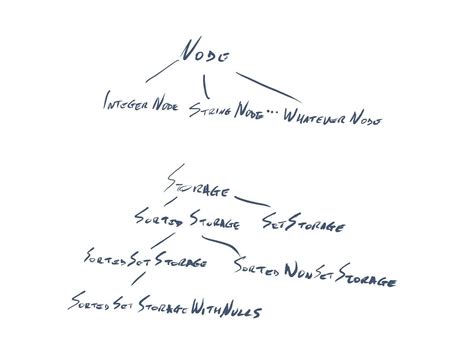 Node
Integer Node String Node... Whatever Node
Storage
Sorted Storage Set Storage
Sorted Set Storage Sorted NonSet Storage
Sorted Set Storage With Nulls